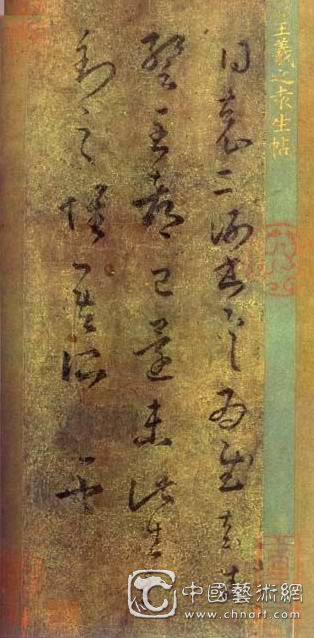 王羲之袁生帖
得袁二謝書具為慰袁生
暫至都已還未此生至
到之懷吾所也
中國藝術網
www.chnart.com